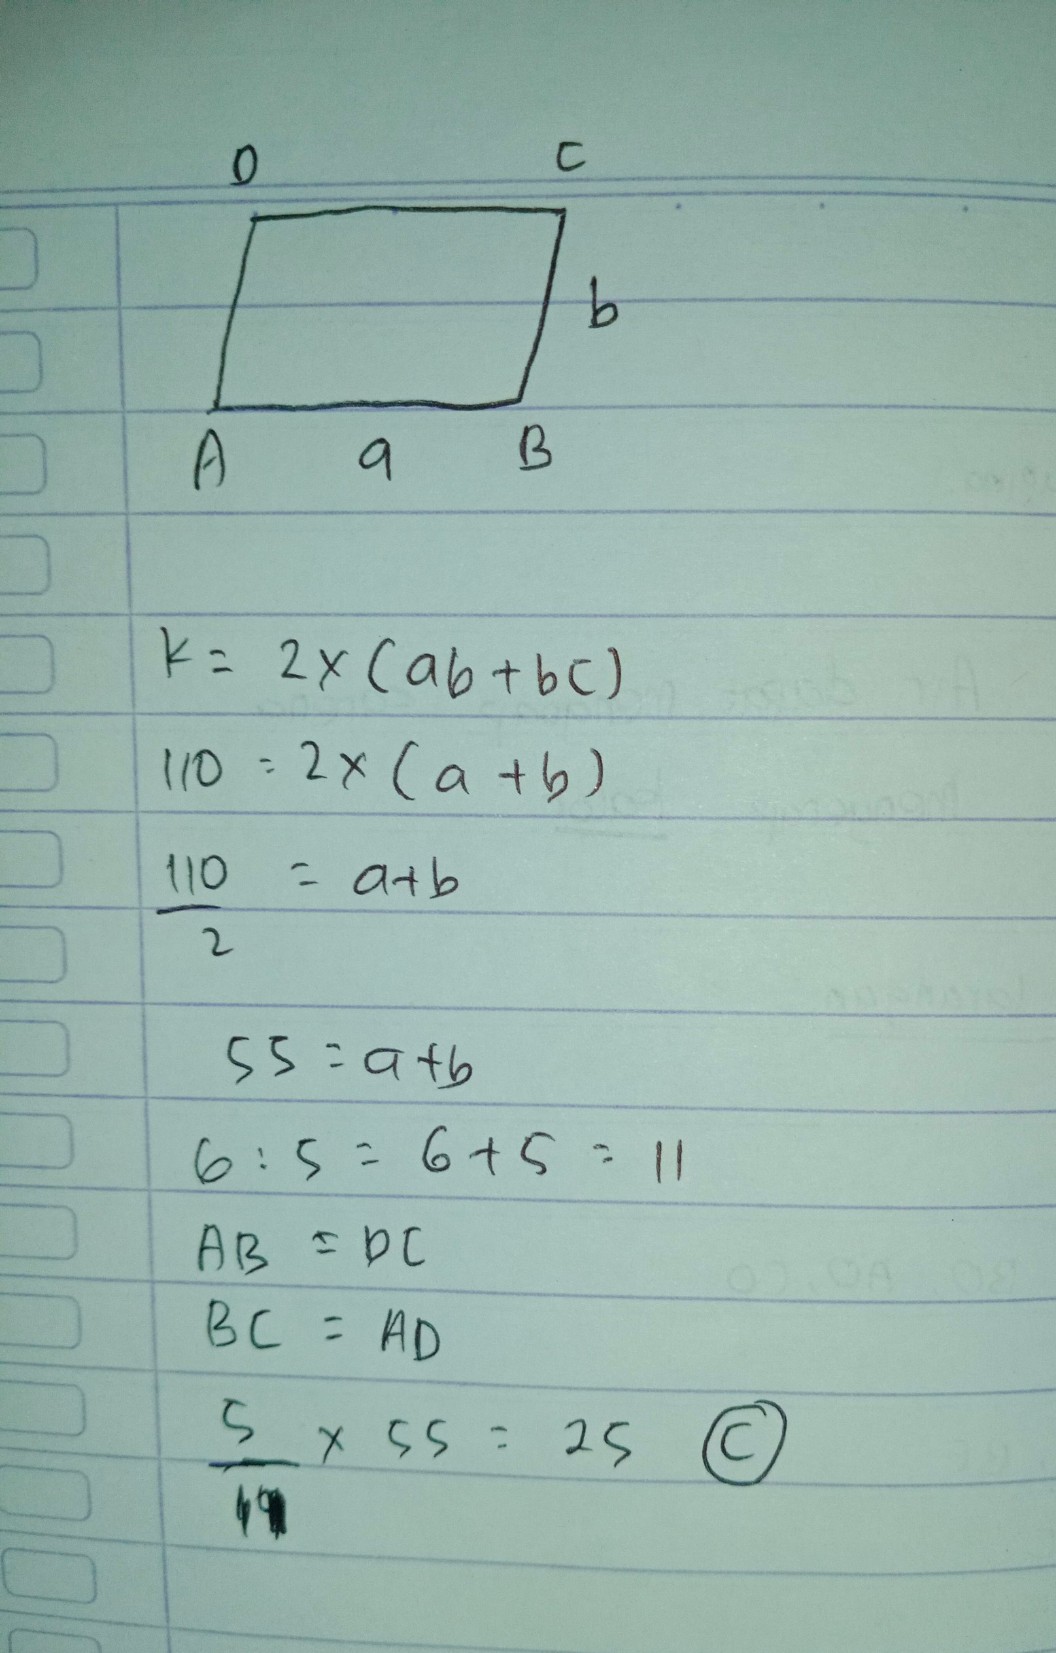 D C
b
A a B
K = 2 x (ab + bc)
110 = 2 x (a + b)
110 = a+b
2
55 = a+b
6 : 5 = 6 + 5 = 11
AB = DC
BC = AD
5 x 55 = 25 C
11